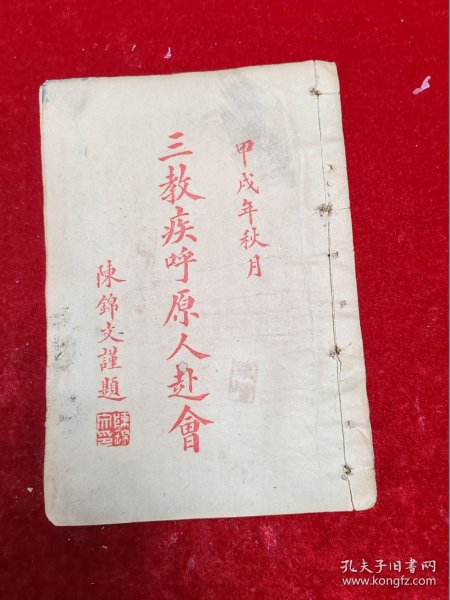 甲戌年秋月
三教疾呼原人赴會
陳錦文謹題
孔夫子旧书网
www.kongfz.com